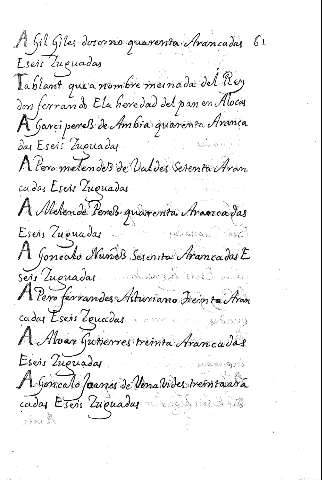 A Gil Giles dosorno quarenta Arancadas 61
Eseis Zuguadas
Tablant que anombre mesnada del Rey
don ferrando E la heredad del pan en Alocas
A Garci pereß de Ambia quarenta Arança
das Eseis Zuguadas
A Pero melendeß de Valdes Sesenta Aran
cadas Eseis Zuguadas
A Melende Pereß quarenta Arancadas
Eseis Zuguadas
A Goncalo Nuñeß Sesenta Arancadas E
seis Zuguadas
A Pero ferrandes Asturiano treinta Aran
cadas Eseis Zguadas
A Alvar Gutierres treinta Arancadas
Eseis Zuguadas
A Goncalo Joanes de Venavides treinta ara
cadas Eseis Zuguadas